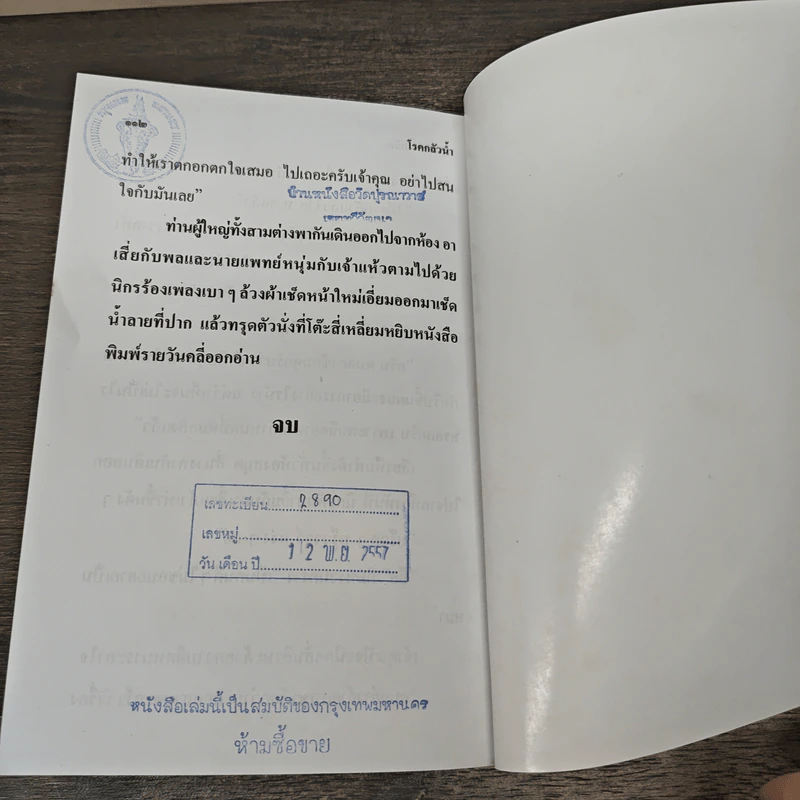 ๑๑๒
โรคกลัวน้ำ
ทำให้เราตกอกตกใจเสมอ ไปเถอะครับเจ้าคุณ อย่าไปสน
ใจกับมันเลย”
บ้านหนังสือวัดปุรณาวาส
ท่านผู้ใหญ่ทั้งสามต่างพากันเดินออกไปจากห้อง อา
เสี่ยกับพลและนายแพทย์หนุ่มกับเจ้าแห้วตามไปด้วย
นิกรร้องเพลงเบา ๆ ล้วงผ้าเช็ดหน้าใหม่เอี่ยมออกมาเช็ด
น้ำลายที่ปาก แล้วทรุดตัวนั่งที่โต๊ะสี่เหลี่ยมหยิบหนังสือ
พิมพ์รายวันคลี่ออกอ่าน
จบ
เลขทะเบียน 2890
เลขหมู่
วัน เดือน ปี 12 พ.ย. 2557
หนังสือเล่มนี้เป็นสมบัติของกรุงเทพมหานคร
ห้ามซื้อขาย